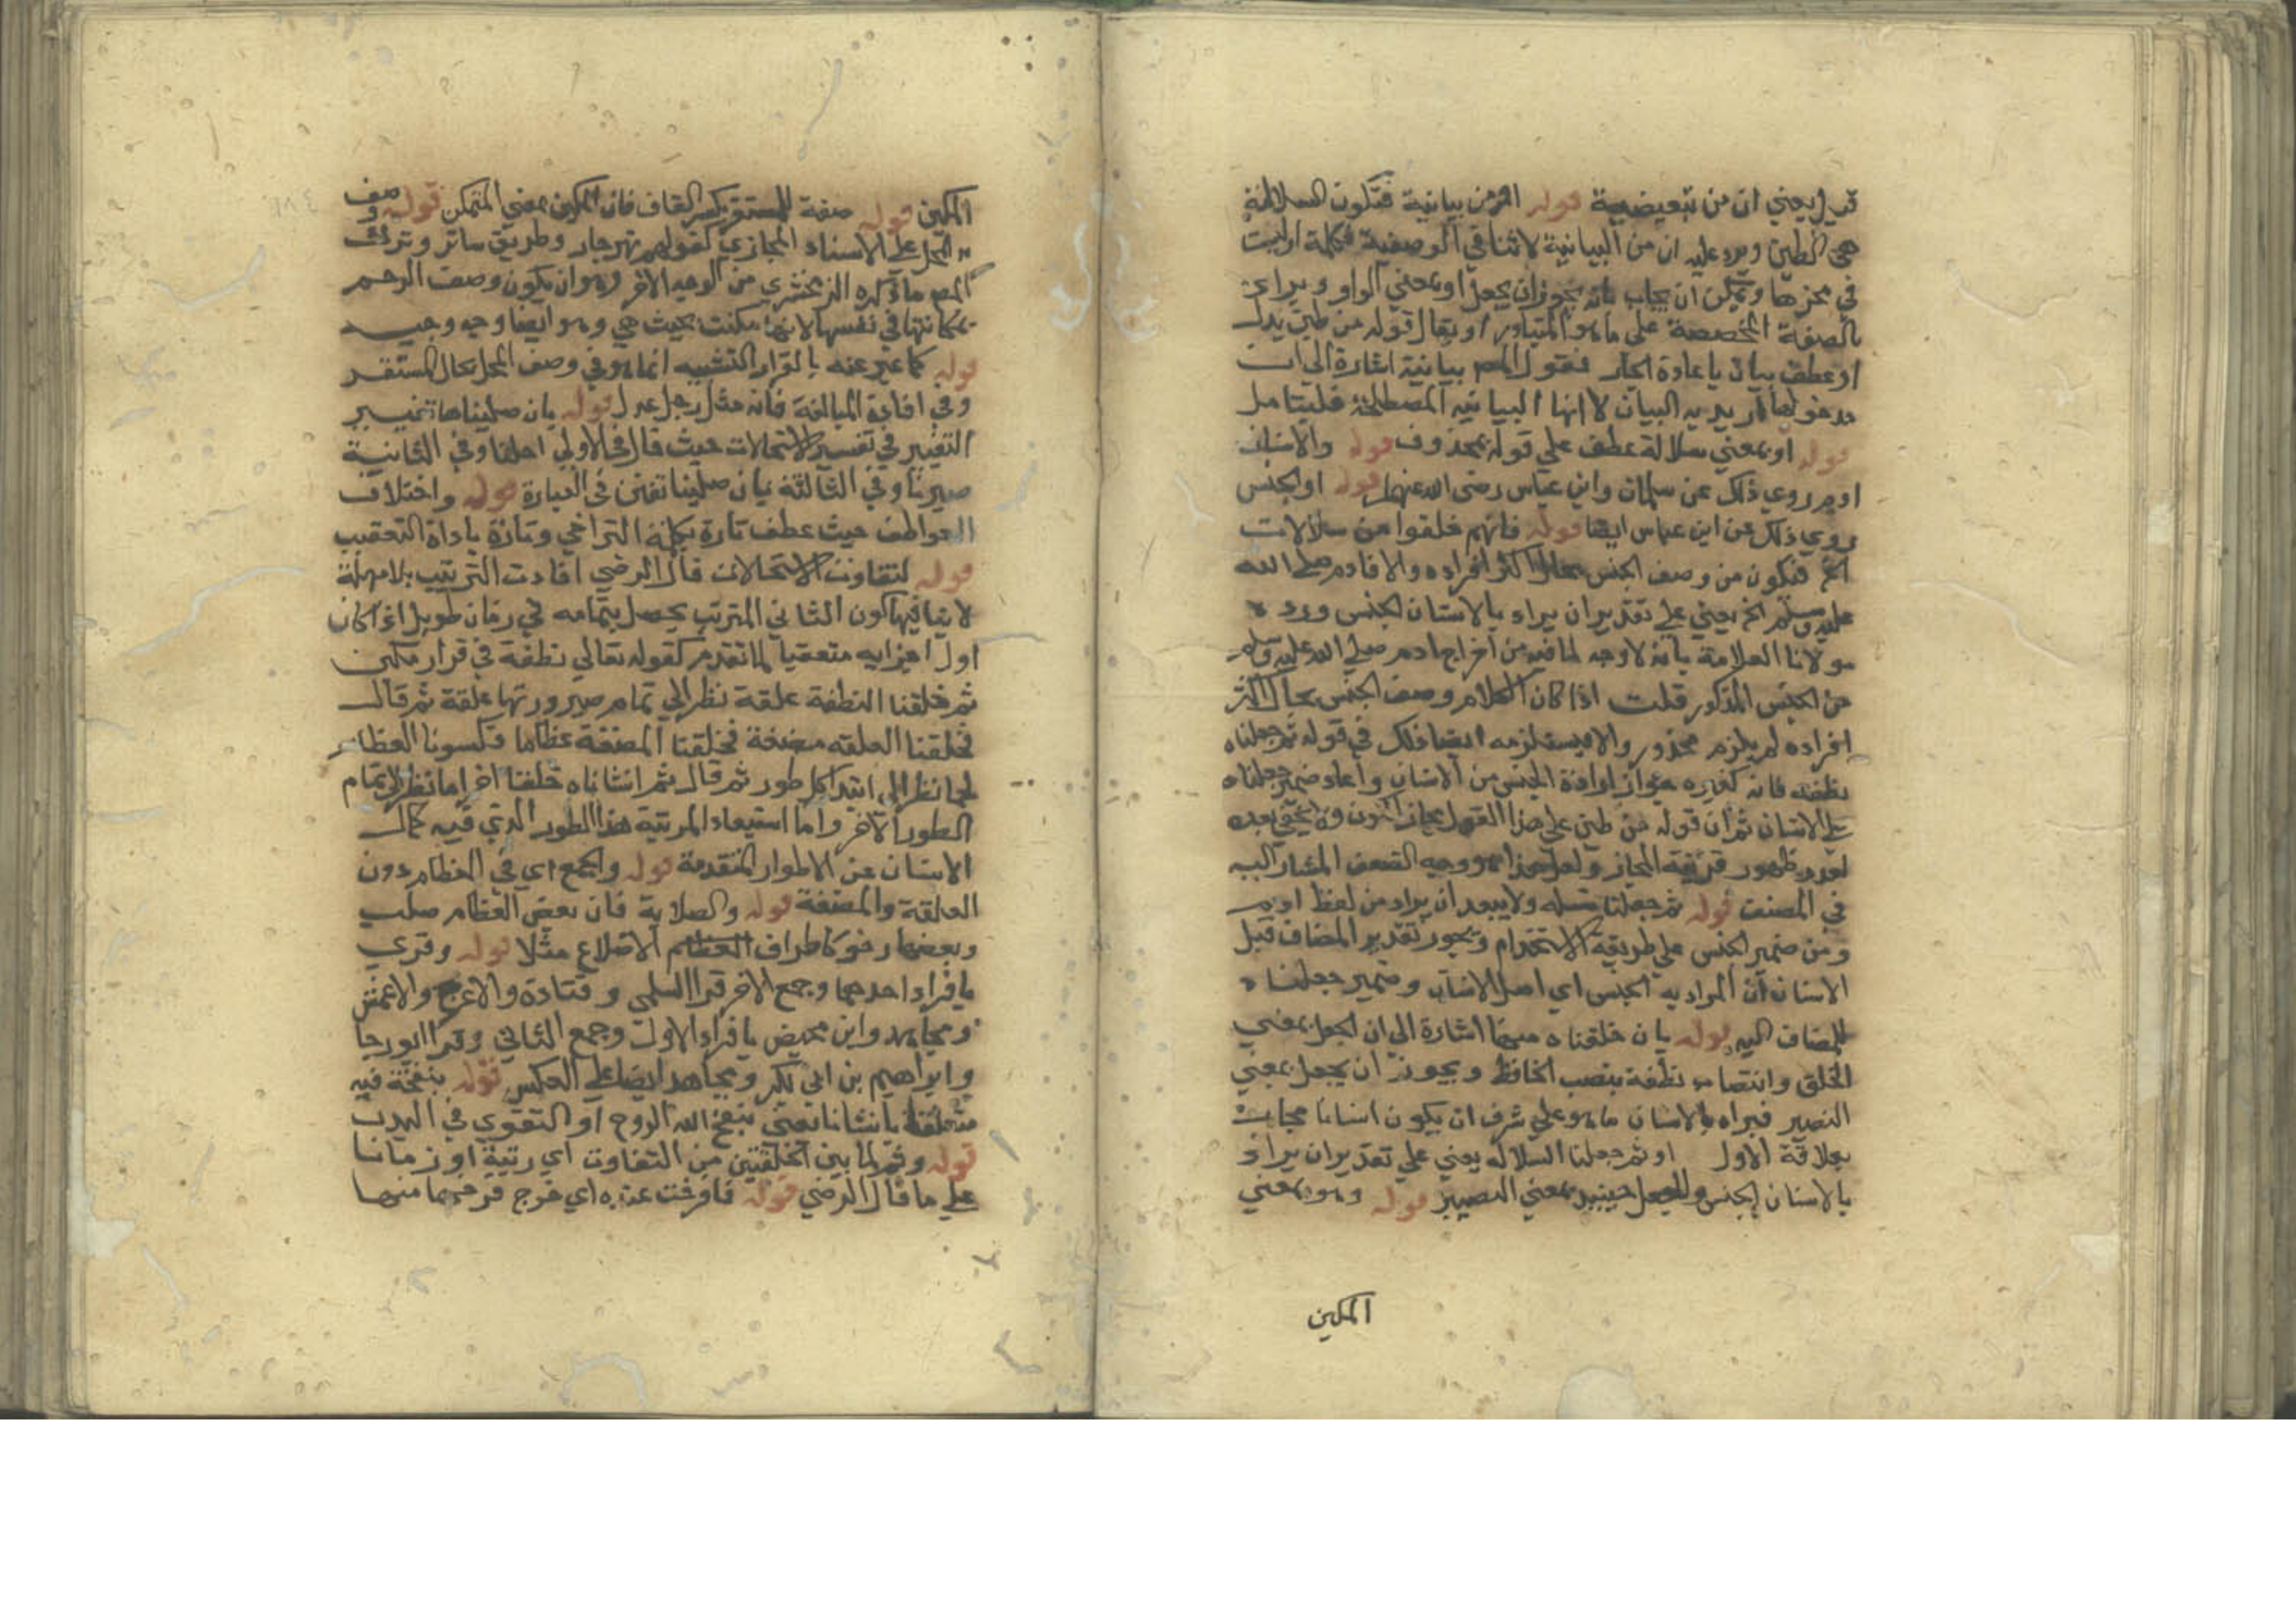 قيل يعني ان من تبعيضية قوله او من بيانية فتكون السلالة
هي الطين ويرد عليه ان من البيانية لا تنافي الوصفية فكلمة او ليست
في محزها ويمكن ان يجاب بانه يجوز ان يجعل او بمعني الواو ويراد
بالصفة المخصصة على ما هو المتبادر او يقال قوله من طين بدل
او عطف بيان باعادة الجار فقول المص بيانية اشارة الى ان
مدخولها اريد به البيان لا انها البيانيه المصطلحة فليتامل
قوله او بمعني سلالة عطف علي قوله بمحذوف قوله والانسان
ادم روي ذلك عن سلمان وابن عباس رضى الله عنهما قوله او الجنس
روي ذلك عن ابن عباس ايضا قوله فانهم خلقوا من سلالات
الخ فتكون من وصف الجنس بحال اكثر افراده والا فادم صلى الله
عليه وسلم الخ يعني على تقدير ان يراد بالانسان الجنس ورده
مولانا العلامة بانه لا وجه لما فيه من اخراج ادم صلى الله عليه وسلم
من الجنس المذكور قلت اذا كان الكلام وصف الجنس بحال اكثر
افراده لم يلزم محذور والا فيستلزمه ايضا ذلك في قوله ثم جعلناه
نطفة فانه كغيره جواز ارادة الجنس من الانسان واعاد ضمير جعلناه
على الانسان ثم ان قوله من طين على هذا القول مجاز الكون ولا يخفى بعده
لعدم ظهور قرينة المجاز ولعل هذا هو وجه الضعف المشار اليه
في المصنف قوله ثم جعلنا نسله ولا يبعد ان يراد من لفظ ادم
ومن ضمير الجنس على طريقة الاستخدام ويجوز تقدير المضاف قبل
الانسان ان المراد به الجنس اي اصل الانسان وضمير جعلناه
للمضاف اليه قوله بان خلقناه منها اشارة الى ان الجعل بمعني
الخلق وانتصاب نطفة بنصب الخافظ ويجوز ان يجعل بمعني
التصيير فيراد بالانسان ما هو على شرف ان يكون انسانا مجازا
بعلاقة الاول او ثم جعلنا السلاله يعني على تقدير ان يراد
بالانسان الجنس والجعل حينئذ بمعني التصيير قوله وهو بمعني
المكين
المكين قوله صفة للمستقر بكسر القاف فان المكين بمعني المتمكن قوله وصف
به المحل على الاسناد المجازي كقولهم نهر جار وطريق سائر وترك
المص ما ذكره الزمخشري من الوجه الاخر وهو ان يكون وصف الرحم
بمكانتها في نفسها لانها مكنت بحيث هي وهو ايضا وجه وجيه
قوله كما عبر عنه بالقرار التشبيه انما هو في وصف المحل بحال المستقر
وفي افادة المبالغة فانه مثل رجل عدل قوله بان صليناها تغيير
التعبير في تفسير الاستحالات حيث قال في الاولى احلنا وفي الثانية
صيرنا وفي الثالثة بان صلينا تفنن في العبارة قوله واختلاف
العواطف حيث عطف تارة بكلمة التراخي وتارة باداة التعقيب
قوله لتفاوت الاستحالات قال الرضي افادت الترتيب بلا مهلة
لا ينافيها كون الثاني المترتب يحصل بتمامه في زمان طويل اذا كان
اول اجزايه متعقبا لما تقدم كقوله تعالي نطفة في قرار مكين
ثم خلقنا النطفة علقة نظرا الي تمام صيرورتها علقة ثم قال
فخلقنا العلقه مضغة فخلقنا المضغة عظاما فكسونا العظام
لحما نظرا الى ابتدا كل طور ثم قال ثم انشاناه خلقا اخر اما نظرا لتمام
الطور الاخر واما استبعادا لمرتبة هذا الطور الذي فيه كمال
الانسان عن الاطوار المتقدمة قوله والجمع اي في العظام دون
العلقة والمضغة قوله والصلابة فان بعض العظام صلب
وبعضها رخو كاطراف العظام الاضلاع مثلا قوله وقري
بافراد احدهما وجمع الاخر قرا السلمي وقتادة والاعرج والاعمش
ومجاهد وابن محيض بافراد الاول وجمع الثاني وقرا ابو رجا
وابراهيم بن ابي بكر ومجاهد ايضا علي العكس قوله بنفخه فيه
متعلقة بانشانا يعني بنفخ الله الروح او القوي في البدن
قوله وثم لما بين الخلقتين من التفاوت اي رتبة او زمانا
على ما قال الرضي قوله فافرخت عنده اي خرج فرخهما منها